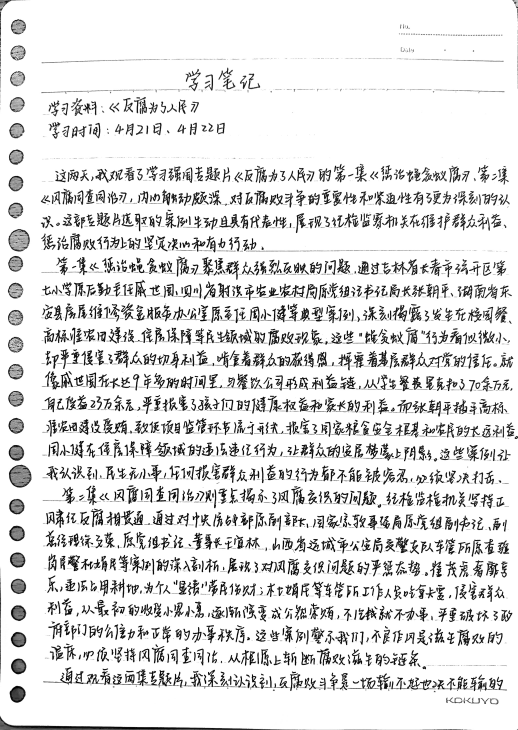 No.
Date
学习笔记
学习资料：《反腐为了人民》
学习时间：4月21日、4月22日
这两天，我观看了学习强国专题片《反腐为了人民》的第一集《惩治蝇贪蚁腐》、第二集
《风腐同查同治》，内心触动颇深，对反腐败斗争的重要性和紧迫性有了更为深刻的认
识。这部专题片选取的案例生动且具有代表性，展现了纪检监察机关在维护群众利益、
惩治腐败行为上的坚定决心和有力行动。
第一集《惩治蝇贪蚁腐》聚焦群众强烈反映的问题，通过吉林省长春市
七小学原后勤主任戚世国、四川省射洪市农业农村局原党组书记局长张朝平、湖南省东
安县房屋维修资金服务办公室原主任周小健等典型案例，深刻揭露了发生在校园餐、
高标准农田建设、住房保障等民生领域的腐败现象，这些“蝇贪蚁腐”行为看似微小，
却严重侵害了群众的切身利益，啃食着群众的获得感，挥霍着基层群众对党的信任。就
像戚世国在长达9年多的时间里，与餐饮公司形成利益链，从学生餐费里克扣370余万元，
自己收受23万余元，严重损害了孩子们的健康权益和家长的利益。而张朝平插手高标
准农田建设受贿，致使项目监管环节属于形式，损害了国家粮食安全根基和农民的长远利益。
周小健在住房保障领域的违法违纪行为，让群众的安居梦蒙上阴影。这些案例让
我认识到，民生无小事，任何损害群众利益的行为都不能被容忍，必须坚决打击。
第二集《风腐同查同治》则重点揭示了风腐交织的问题。纪检监察机关坚持正
风肃纪反腐相贯通，通过对中央统战部原副部长，国家宗教事务局原党组副书记、副
原党组书记、董事长王宜林，山西省运城市公安局交警支队车管所原查验
岗民警杜娟民等案例的深入剖析，展现了对风腐交织问题的严惩态势。崔茂虎奢靡享
乐，违法占用耕地，为个人“显摆”劳民伤财；杜娟民等车管所工作人员吃拿卡要，侵害群众
利益，从最初的收受小恩小惠，逐渐演变成公然索贿，不给钱就不办事，严重破坏了政
府部门的公信力和正常的办事秩序。这些案例警示我们，不良作风是滋生腐败的
温床，必须坚持风腐同查同治，从根源上斩断腐败滋生的链条。
通过观看这两集专题片，我深刻认识到，反腐败斗争是一场输不起也决不能输的
KOKUYO